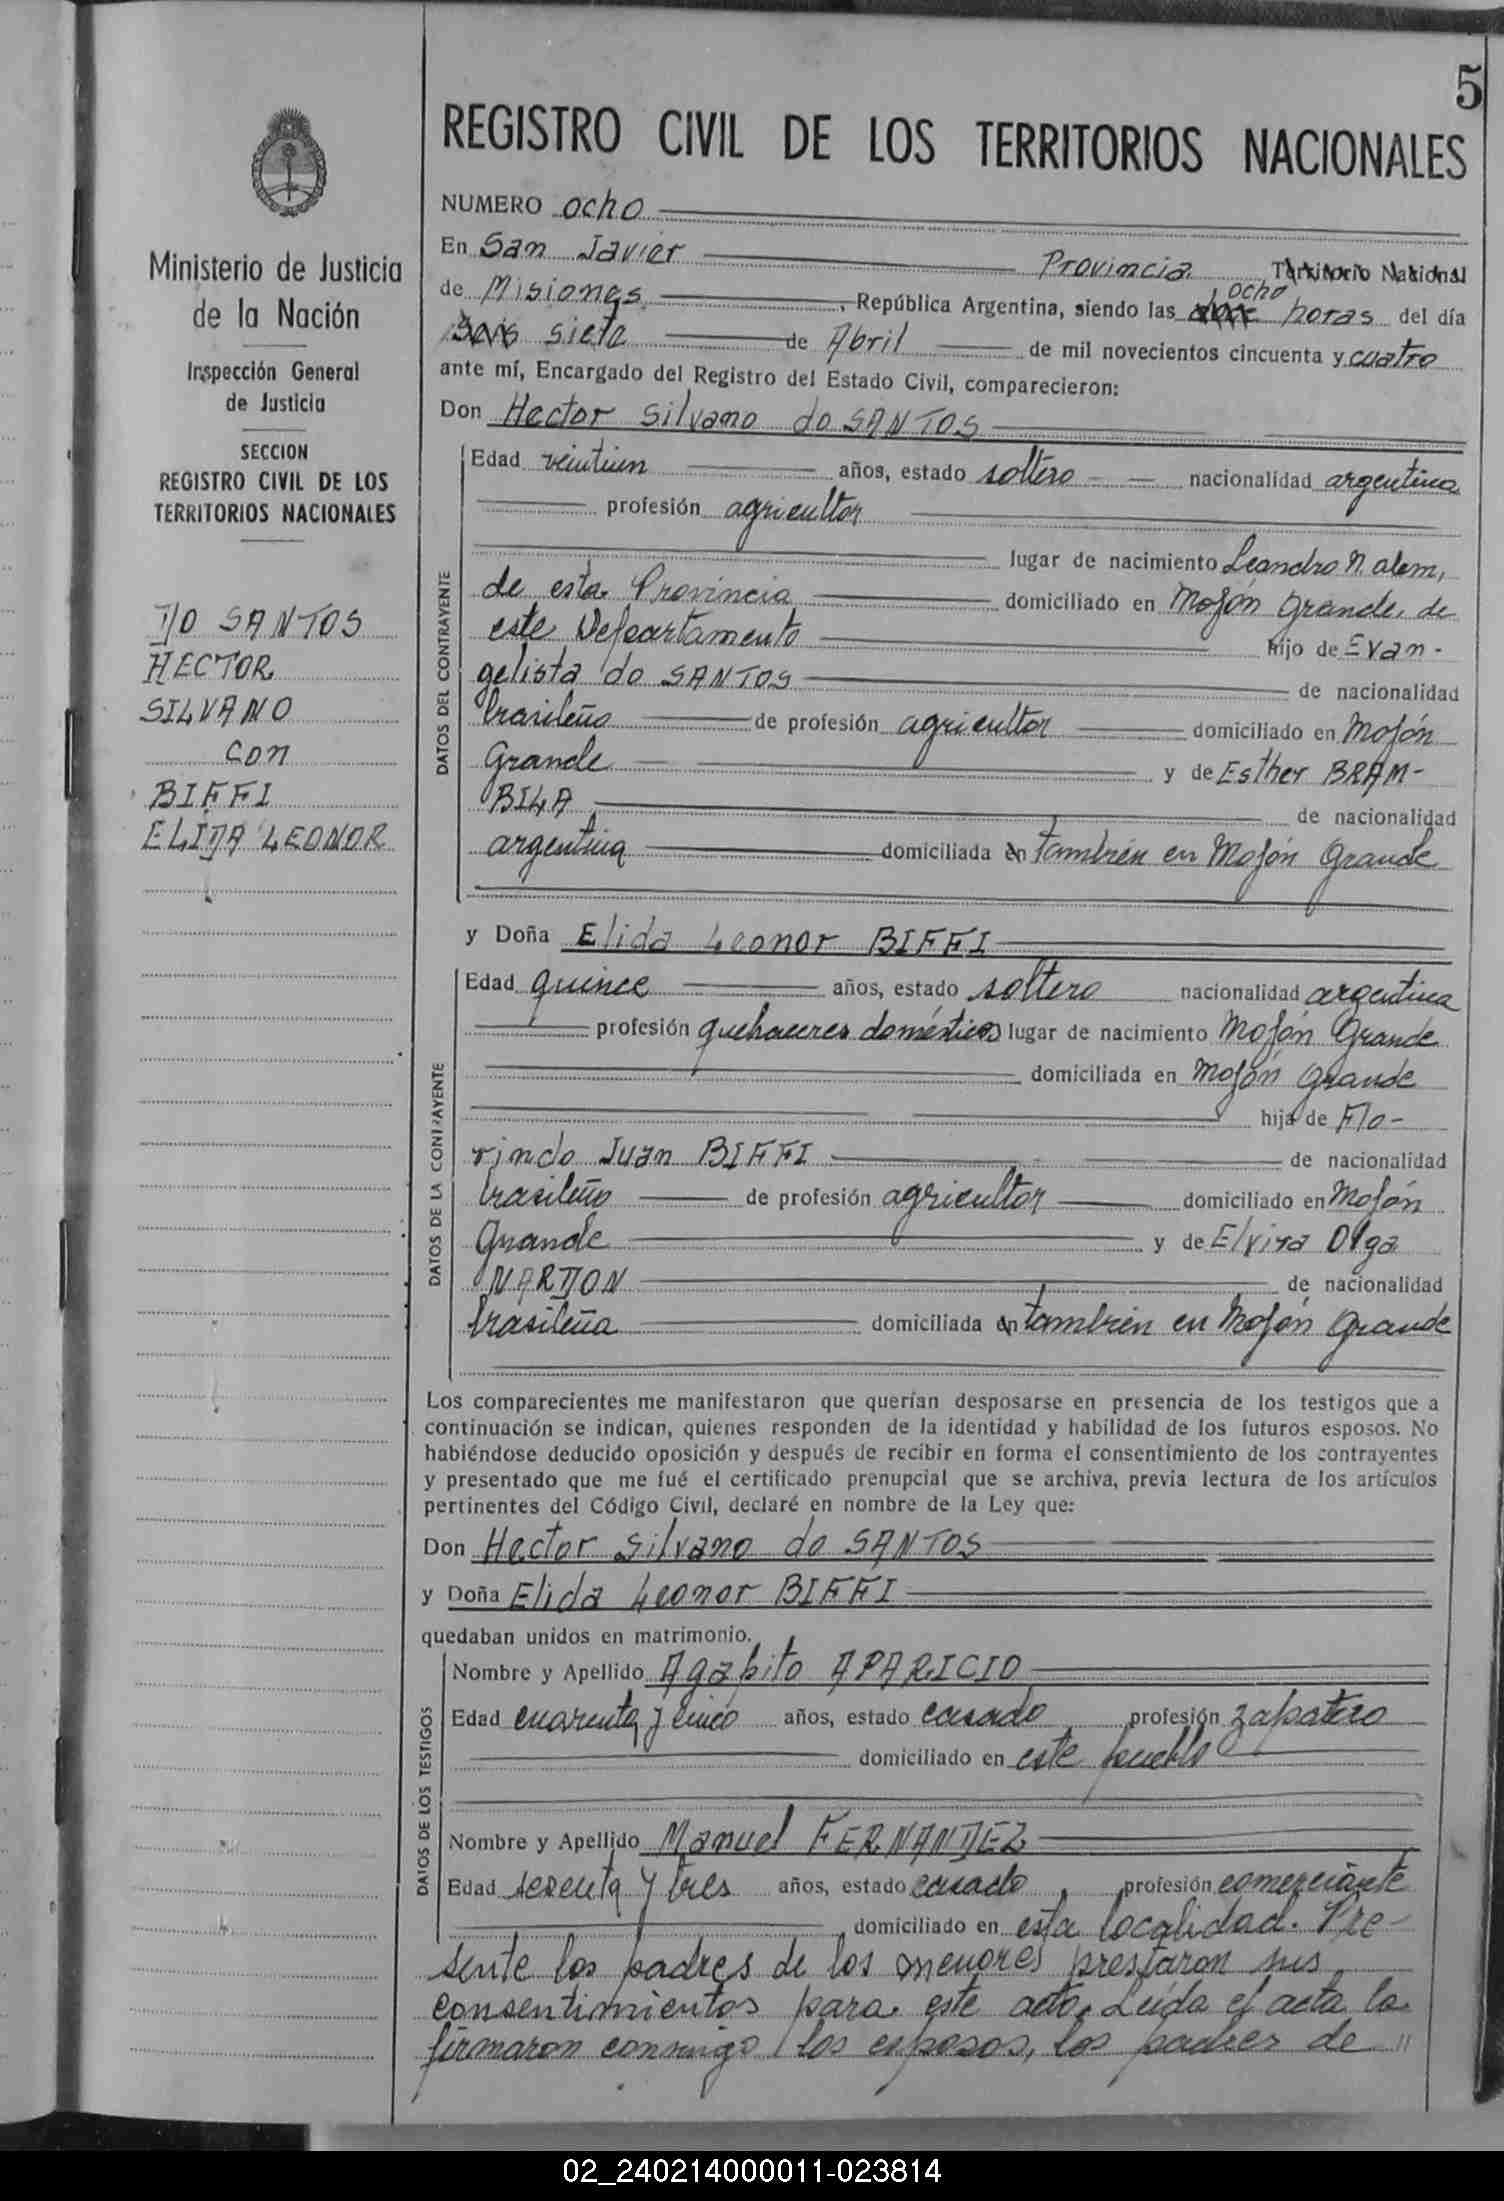 5
REGISTRO CIVIL DE LOS TERRITORIOS NACIONALES
Ministerio de Justicia
de la Nación
Inspección General
de Justicia
SECCION
REGISTRO CIVIL DE LOS
TERRITORIOS NACIONALES
DO SANTOS
HECTOR
SILVANO
con
BIFFI
ELIDA LEONOR
NUMERO ocho
En San Javier Provincia Territorio Nacional
de Misiones, República Argentina, siendo las ocho horas del día
seis siete de Abril de mil novecientos cincuenta y cuatro
ante mí, Encargado del Registro del Estado Civil, comparecieron:
Don Hector Silvano do SANTOS
DATOS DEL CONTRAYENTE
Edad veintiun años, estado soltero nacionalidad argentina
profesión agricultor
lugar de nacimiento Leandro N. alem,
de esta Provincia domiciliado en Mojón Grande, de
este Departamento hijo de Evan-
gelista do SANTOS de nacionalidad
brasileño de profesión agricultor domiciliado en Mojón
Grande y de Esther BRAM-
BILA de nacionalidad
argentina domiciliada en también en Mojón Grande
y Doña Elida Leonor BIFFI
DATOS DE LA CONTRAYENTE
Edad quince años, estado soltero nacionalidad argentina
profesión quehaceres domésticos lugar de nacimiento Mojón Grande
domiciliada en Mojón Grande
hija de Flo-
rindo Juan BIFFI de nacionalidad
brasileño de profesión agricultor domiciliado en Mojón
Grande y de Elvira Olga
NARDON de nacionalidad
brasileña domiciliada en también en Mojón Grande
Los comparecientes me manifestaron que querían desposarse en presencia de los testigos que a
continuación se indican, quienes responden de la identidad y habilidad de los futuros esposos. No
habiéndose deducido oposición y después de recibir en forma el consentimiento de los contrayentes
y presentado que me fué el certificado prenupcial que se archiva, previa lectura de los artículos
pertinentes del Código Civil, declaré en nombre de la Ley que:
Don Hector Silvano do SANTOS
y Doña Elida Leonor BIFFI
quedaban unidos en matrimonio.
DATOS DE LOS TESTIGOS
Nombre y Apellido Agapito APARICIO
Edad cuarenta y cinco años, estado casado profesión zapatero
domiciliado en este pueblo
Nombre y Apellido Manuel FERNANDEZ
Edad sesenta y tres años, estado casado, profesión comerciante
domiciliado en esta localidad. Pre-
sente los padres de los menores prestaron sus
consentimientos para este acto. Leída el acta la
firmaron conmigo los esposos, los padres de "
02_240214000011-023814